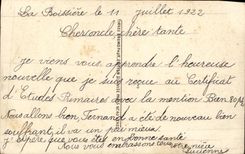 La Boissière le 11 juillet 1922
Cher oncle, chère tante
je viens vous apprendre l'heureuse
nouvelle que je suis reçue au Certificat
d'Etudes Primaires avec la mention Bien
Nous allons bien, Fernand a été de nouveau bien
souffrant, il va un peu mieux
j'espère que vous êtes en bonne santé
Nous vous embrassons votre nièce
Lucienne